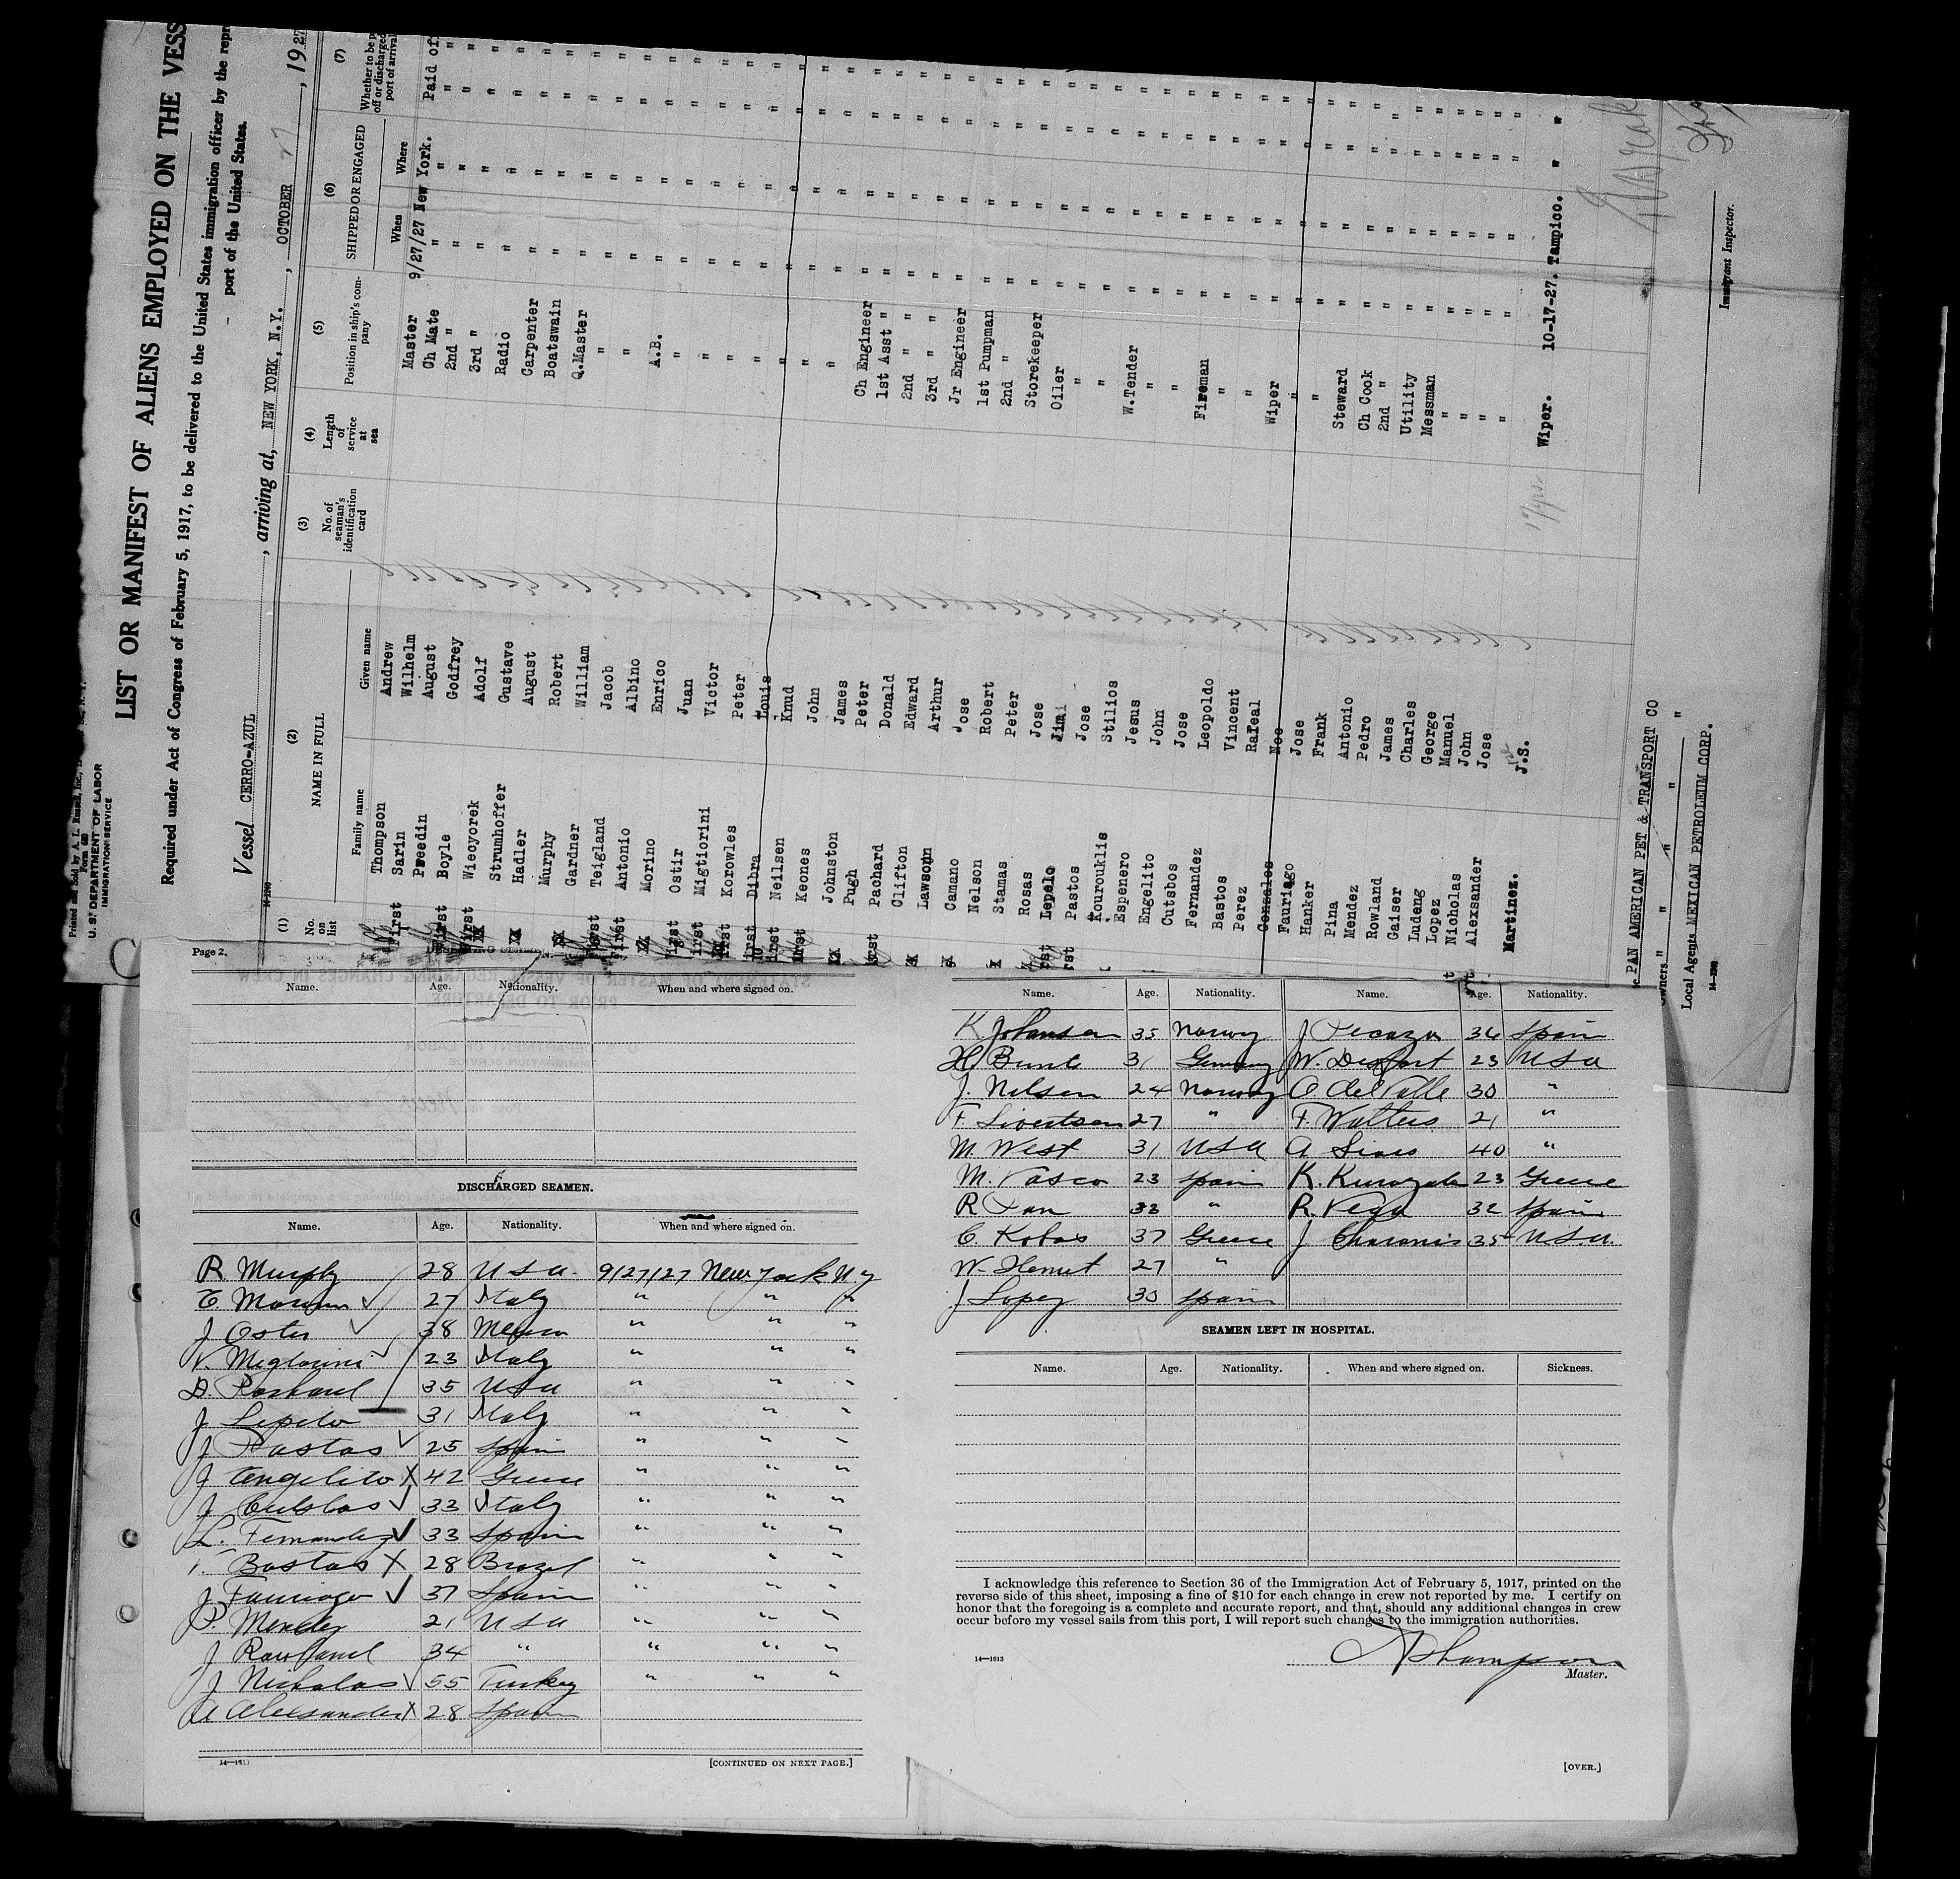 Printed and Sold by A. L. Russell, Inc.,
Form 680
U. S. DEPARTMENT OF LABOR
IMMIGRATION SERVICE
LIST OR MANIFEST OF ALIENS EMPLOYED ON THE VESS
Required under Act of Congress of February 5, 1917, to be delivered to the United States immigration officer by the repr
port of the United States.
Vessel CERRO-AZUL, arriving at, NEW YORK, N.Y., OCTOBER 27, 1927
(1) (2) (3) (4) (5) (6) (7)
No. on list NAME IN FULL No. of seaman's identification card Length of service at sea Position in ship's company SHIPPED OR ENGAGED Whether to be p off or discharged port of arrival
Family name Given name When Where
Thompson Andrew Master 9/27/27 New York. Paid of
First Sarin Wilhelm Ch Mate " " "
Preedin August 2nd " " " "
First Boyle Godfrey 3rd " " " "
First Wiecyorek Adolf Radio " " "
Strumhoffer Gustave Carpenter " " "
Hadler August Boatswain " " "
Murphy Robert Q.Master " " "
Gardner William " " " "
First Teigland Jacob " " " "
First Antonio Albino A.B. " " "
Morino Enrico " " " "
irst Ostir Juan " " " "
irst Migtiorini Victor " " " "
irst Korowles Peter " " " "
irst Dibra Louis " " " "
irst Neilsen Knud " " " "
irst Keones John " " " "
Johnston James Ch Engineer " " "
Pugh Peter 1st Asst " " " "
rst Pachard Donald 2nd " " " " "
Clifton Edward 3rd " " " " "
Lawson Arthur Jr Engineer " " "
Camano Jose 1st Pumpman " " "
Nelson Robert 2nd " " " "
Stamas Peter Storekeeper " " "
Rosas Jose Oiler " " "
rst Lepelo Jimi " " " "
rst Pastos Jose " " " "
Kourouklis Stilios W.Tender " " "
Espenero Jesus " " " "
Engelito John " " " "
Cutsbos Jose Fireman " " "
Fernandez Leopoldo " " " "
Bastos Vincent " " " "
Perez Rafeal Wiper " " "
Gonzales Noe " " " "
Fauriago Jose " " " "
Hanker Frank Steward " " "
Pina Antonio Ch Cook " " "
Mendez Pedro 2nd " " " "
Rowland James Utility " " "
Gaiser Charles Messman " " "
Ludeng George " " " "
Lopez Manuel " " " "
Nicholas John " " " "
Alexsander Jose " " " "
Martinez. J.S. Wiper. 10-17-27. Tampico. " "
PAN AMERICAN PET & TRANSPORT CO
Owners " " " "
Local Agents MEXICAN PETROLEUM CORP.
14-1240
Immigrant Inspector.
Page 2.
Name. Age. Nationality. When and where signed on.
DISCHARGED SEAMEN.
Name. Age. Nationality. When and where signed on.
R. Murphy 28 USA. 9/27/27 New York N.Y
E. Morino 27 Italy " " "
J Oster 38 Mexico " " "
V. Migtiorini 23 Italy " " "
D. Pachard 35 USA " " "
J Lepelo 31 Italy " " "
J Pastos 25 Spain " " "
J Engelito X 42 Greece " " "
J Cutsbos 33 Italy " " "
L. Fernandez 33 Spain " " "
V. Bastos X 28 Brazil " " "
J Fauriago 37 Spain " " "
P. Mendez 21 USA " " "
J Rowland 34 " " " "
J Nicholas 55 Turkey " " "
A Alexsander X 28 Spain
[CONTINUED ON NEXT PAGE.]
Name. Age. Nationality. Name. Age. Nationality.
K Johansen 35 Norway J 36 Spain
H. Bunte 31 Germany W. 23 USA
J. Nilsen 24 Norway O del Valle 30 "
F. Sivertsen 27 " F. Walters 21 "
M. West 31 USA A 40 "
M. Vasco 23 Spain K. 23 Greece
R 33 " R. Vega 32 Spain
C. Kobos 37 Greece J 35 U.S.A.
W. 27 "
J Lopez 30 Spain
SEAMEN LEFT IN HOSPITAL.
Name. Age. Nationality. When and where signed on. Sickness.
I acknowledge this reference to Section 36 of the Immigration Act of February 5, 1917, printed on the
reverse side of this sheet, imposing a fine of $10 for each change in crew not reported by me. I certify on
honor that the foregoing is a complete and accurate report, and that, should any additional changes in crew
occur before my vessel sails from this port, I will report such changes to the immigration authorities.
A Thompson
14—1613 Master.
[OVER.]